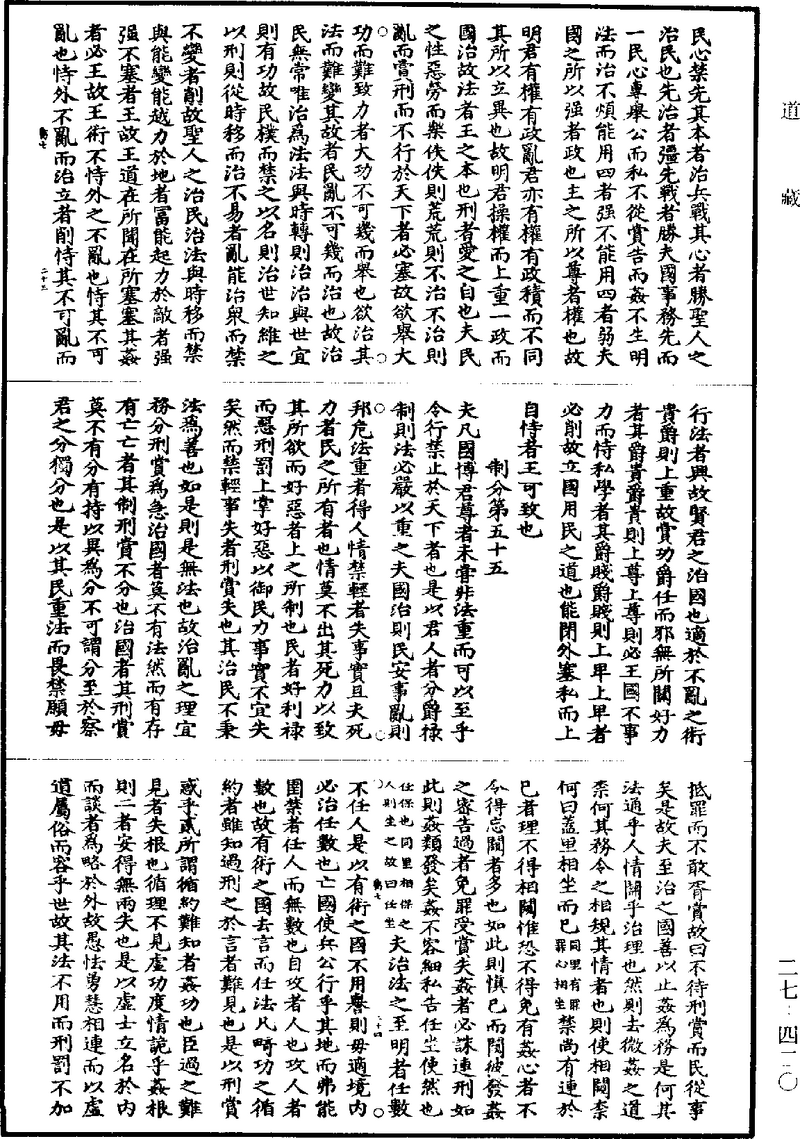 道藏
民心禁先其本者治兵戰其心者勝聖人之
治民也先治者彊先戰者勝夫國事務先而
一民心專舉公而私不從賞告而姦不生明
法而治不煩能用四者强不能用四者弱夫
國之所以强者政也主之所以尊者權也故
明君有權有政亂君亦有權有政積而不同
其所以立異也故明君操權而上重一政而
國治故法者王之本也刑者愛之自也夫民
之性惡勞而樂佚佚則荒荒則不治不治則
亂而賞刑而不行於天下者必塞故欲舉大
功而難致力者大功不可幾而舉也欲治其
法而難變其故者民亂不可幾而治也故治
民無常唯治爲法法與時轉則治治與世宜
則有功故民樸而禁之以名則治世知維之
以刑則從時移而治不易者亂能治衆而禁
不變者削故聖人之治民治法與時移而禁
與能變能越力於地者富能起力於敵者强
强不塞者王故王道在所聞在所塞塞其姦
者必王故王術不恃外之不亂也恃其不可
亂也恃外不亂而治立者削恃其不可亂而
二十三
行法者興故賢君之治國也適於不亂之術
貴爵則上重故賞功爵任而邪無所關好力
者其爵貴爵貴則上尊上尊則必王國不事
力而恃私學者其爵賤爵賤則上卑上卑者
必削故立國用民之道也能閉外塞私而上
自恃者王可致也
制分第五十五
夫凡國博君尊者未嘗非法重而可以至乎
令行禁止於天下者也是以君人者分爵祿
制則法必嚴以重之夫國治則民安事亂則
邦危法重者得人情禁輕者失事實且夫死
力者民之所有者也情莫不出其死力以致
其所欲而好惡者上之所制也民者好利祿
而惡刑罰上掌好惡以御民力事實不宜失
矣然而禁輕事失者刑賞失也其治民不秉
法爲善也如是則是無法也故治亂之理宜
務分刑賞爲急治國者莫不有法然而有存
有亡亡者其制刑賞不分也治國者其刑賞
莫不有分有持以異爲分不可謂分至於察
君之分獨分也是以其民重法而畏禁願毋
抵罪而不敢胥賞故曰不待刑賞而民從事
矣是故夫至治之國善以止姦爲務是何其
法通乎人情關乎治理也然則去微姦之道
柰何其務令之相規其情者也則使相闚柰
何曰蓋里相坐而已同里有罪罪心相坐禁尚有連於
已者理不得相闚惟恐不得免有姦心者不
令得忘闚者多也如此則慎已而闚彼發姦
之密告過者免罪受賞失姦者必誅連刑如
此則姦類發矣姦不容細私告任坐使然也
任保也同里相保之人則坐之故曰任坐夫治法之至明者任數
不任人是以有術之國不用譽則毋適境內
二十四
必治任數也亡國使兵公行乎其地而弗能
圉禁者任人而無數也自攻者人也攻人者
數也故有術之國去言而任法凡畸功之循
約者雖知過刑之於言者難見也是以刑賞
惑乎貳所謂循約難知者姦功也臣過之難
見者失根也循理不見虛功度情詭乎姦根
則二者安得無兩失也是以虛士立名於內
而談者爲略於外故愚怯勇慧相連而以虛
道屬俗而容乎世故其法不用而刑罰不加
二七·四二〇